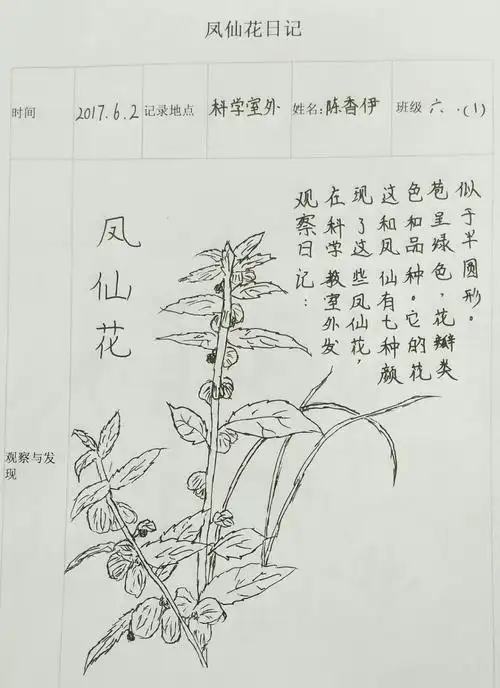 凤仙花日记
时间 2017.6.2 记录地点 科学室外 姓名: 陈香伊 班级 六.(1)
凤仙花
观察日记：
在科学教室外发
现了这些凤仙花，
这和凤仙有七种颜
色和品种。它的花
苞呈绿色，花瓣类
似于半圆形。
观察与发
现